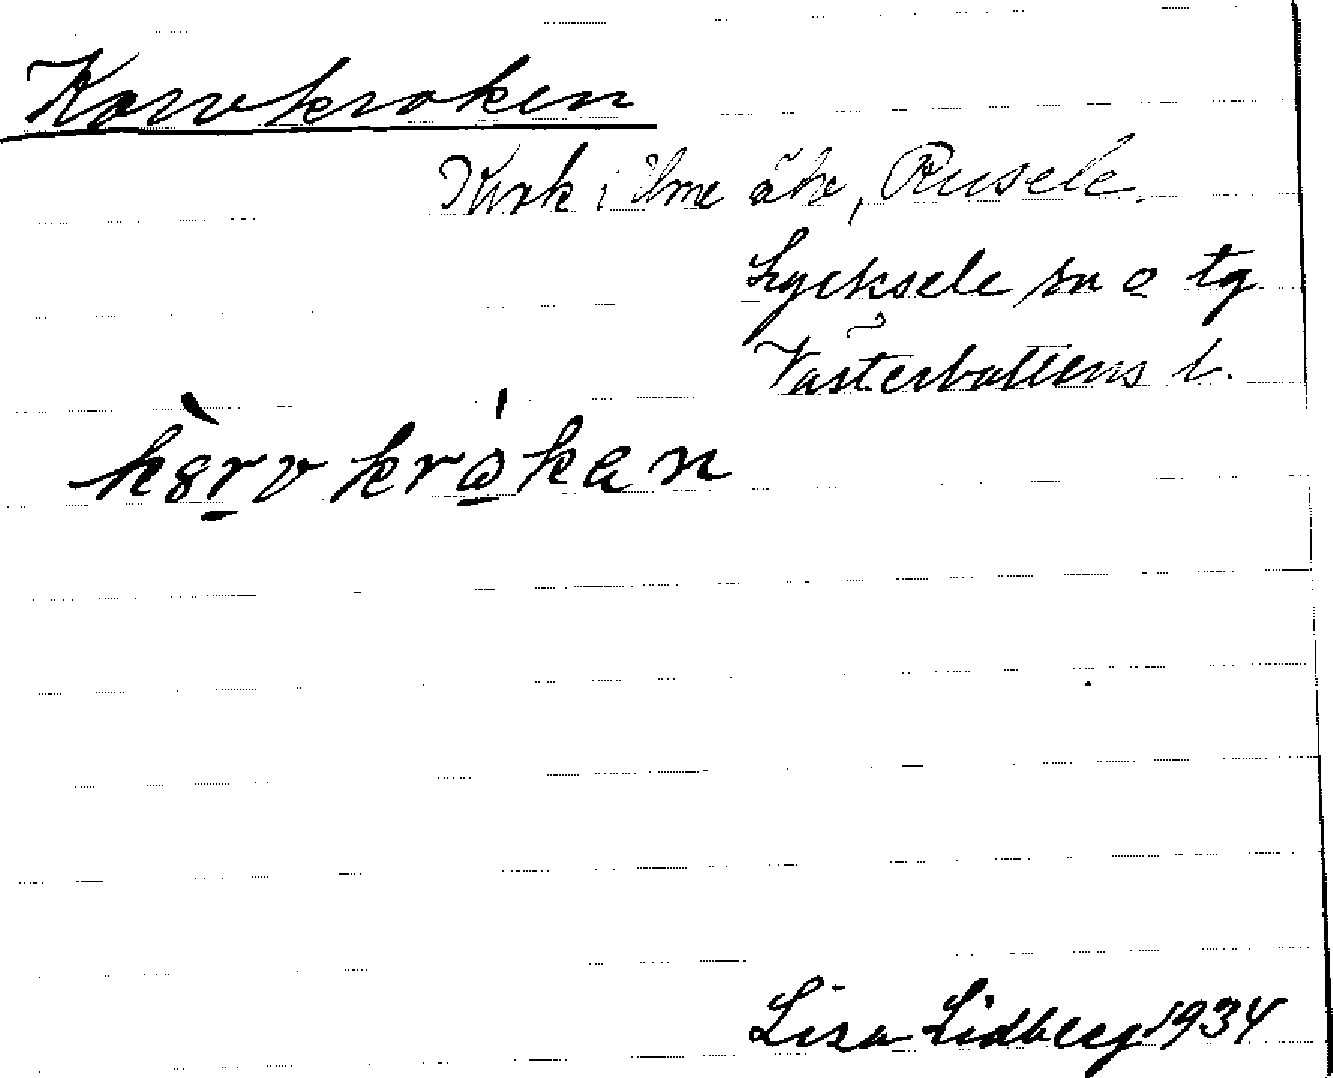 Korvkroken
Krok i Ume älv, Rusele.
Lycksele sn o tg
Västerbottens l.
kòrvkrókan
Lisa Lidberg 1934